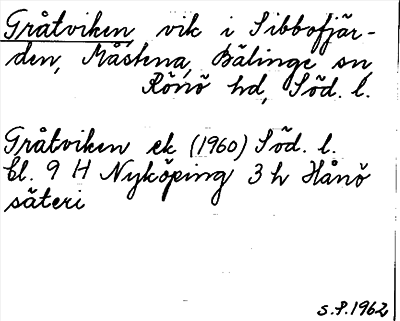 Gråtviken, vik i Sibbofjär-
den, Måstena, Bälinge sn,
Rönö hd, Söd. l.
Gråtviken ek (1960) Söd. l.
bl. 9 H Nyköping 3 h Hånö
säteri
s.f. 1962